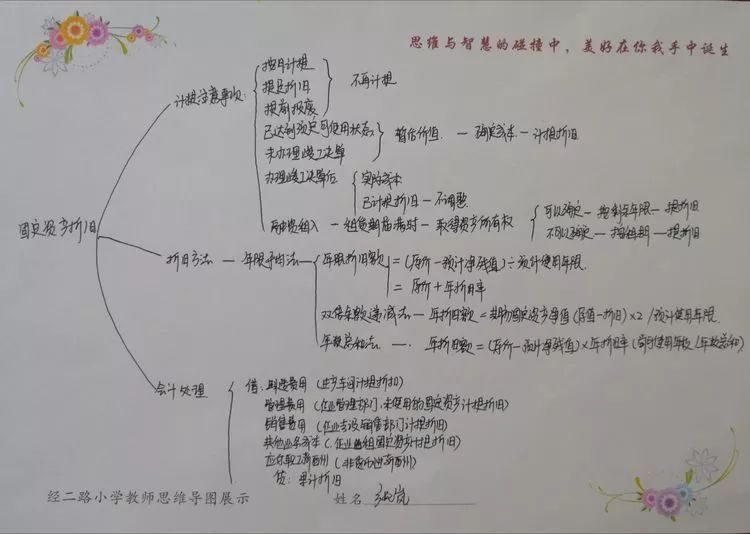 思维与智慧的碰撞中，美好在你我手中诞生
固定资产折旧
计提注意事项：
按月计提
提足折旧
提前报废
不再计提
已达到预定可使用状态
未办理竣工决算
暂估价值 — 确定成本 — 计提折旧
办理竣工决算后
实际成本
已计提折旧 — 不调整
融资租入 — 租赁期届满时 — 取得资产所有权
可以确定 — 按剩余年限 — 提折旧
不可以确定 — 按租期 — 提折旧
折旧方法 — 年限平均法
年限折旧额 = (原价-预计净残值) ÷ 预计使用年限
= 原价 + 年折旧率
双倍余额递减法 — 年折旧额 = 期初固定资产净值 (原值-折旧) × 2 / 预计使用年限
年数总和法 — 年折旧额 = (原价-预计净残值) × 年折旧率 (尚可使用年数 / 年数总和)
会计处理
借：制造费用 (生产车间计提折扣)
管理费用 (企业管理部门、未使用的固定资产计提折旧)
销售费用 (企业专设销售部门计提折旧)
其他业务成本 (企业出租固定资产计提折旧)
应付职工薪酬 (非货币性薪酬)
贷：累计折旧
经二路小学教师思维导图展示
姓名 张岚